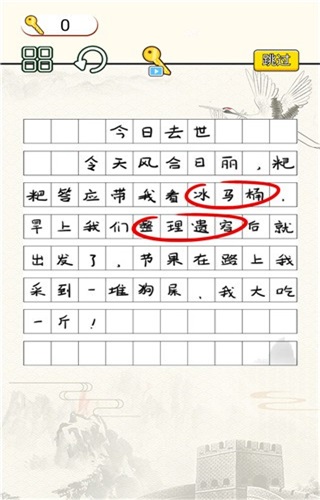 0
跳过
今日去世
今天风合日丽,粑
粑答应带我看冰马桶.
旱上我们整理遗容后就
出发了,节果在路上我
采到一堆狗屎.我大吃
一斤!